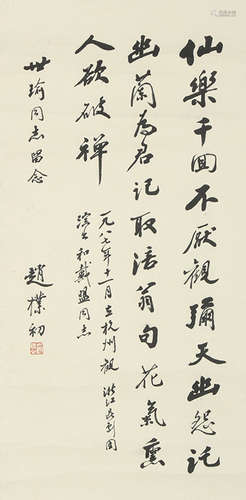 仙樂千回不厭觀彌天幽怨託
幽蘭為君記取涪翁句花氣熏
人欲破禪
一九八七年十一月在杭州觀浙江昆劇團
演出和戴盟同志
世瑜同志留念
趙樸初